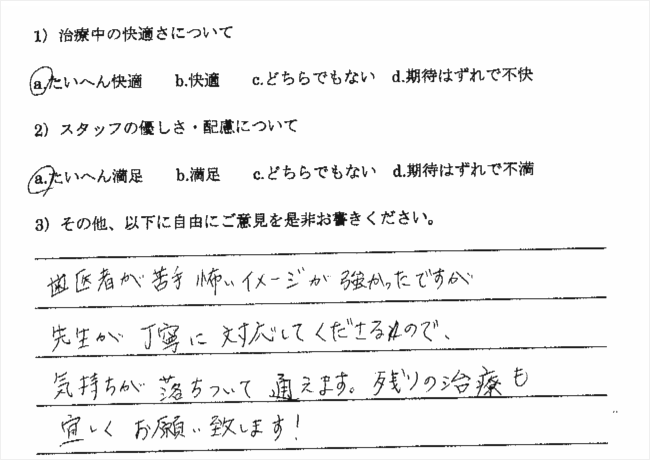 1）治療中の快適さについて
a.たいへん快適 b.快適 c.どちらでもない d.期待はずれで不快
2）スタッフの優しさ・配慮について
a.たいへん満足 b.満足 c.どちらでもない d.期待はずれで不満
3）その他、以下に自由にご意見を是非お書きください。
歯医者が苦手 怖いイメージが 強かったですが
先生が 丁寧に 対応してくださるので、
気持ちが 落ちついて 通えます。残りの治療も
宜しく お願い致します！